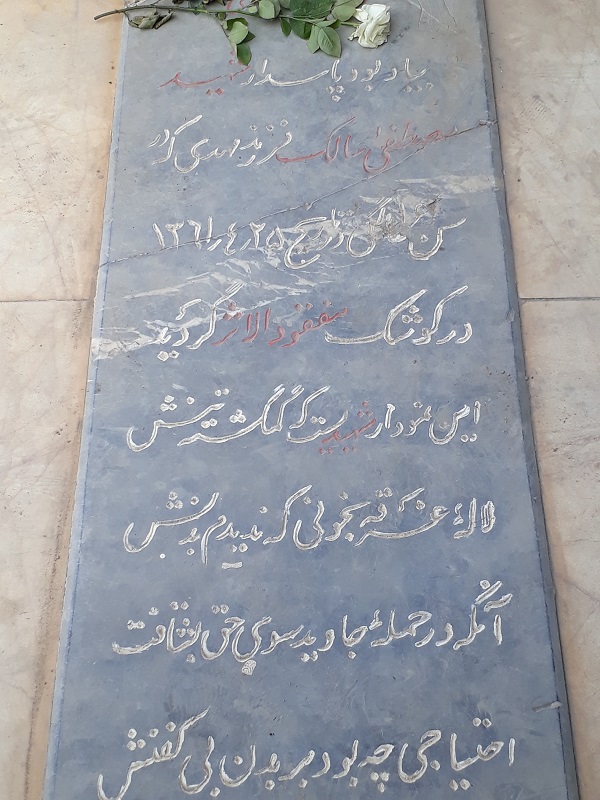 بیادبود پاسدار شهید
مصطفی سالک فرزند مهدی که در
سن تاریخ ۱۳۶۱٫۴٫۲۵
در کوشک مفقودالاثر گردید
این نمودار شهیدیست که گمگشته تنش
لالهٔ غرقه بخونی که ندیدم بدنش
آنکه در حملهٔ جاوید سوی حق بشتافت
احتیاجی چه بود بر بدن بی کفنش